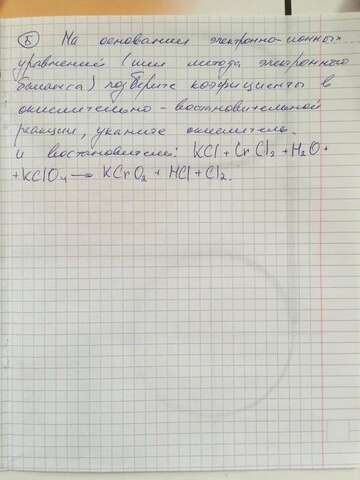 Б На основании электронно-ионных
уравнений (или метода электронного
баланса) подберите коэфициенты в
окислительно - востановительной
реакции, укажите окислитель
и востановитель: KCl + CrCl₂ + H₂O +
+ KClO₄ → KCrO₂ + HCl + Cl₂.